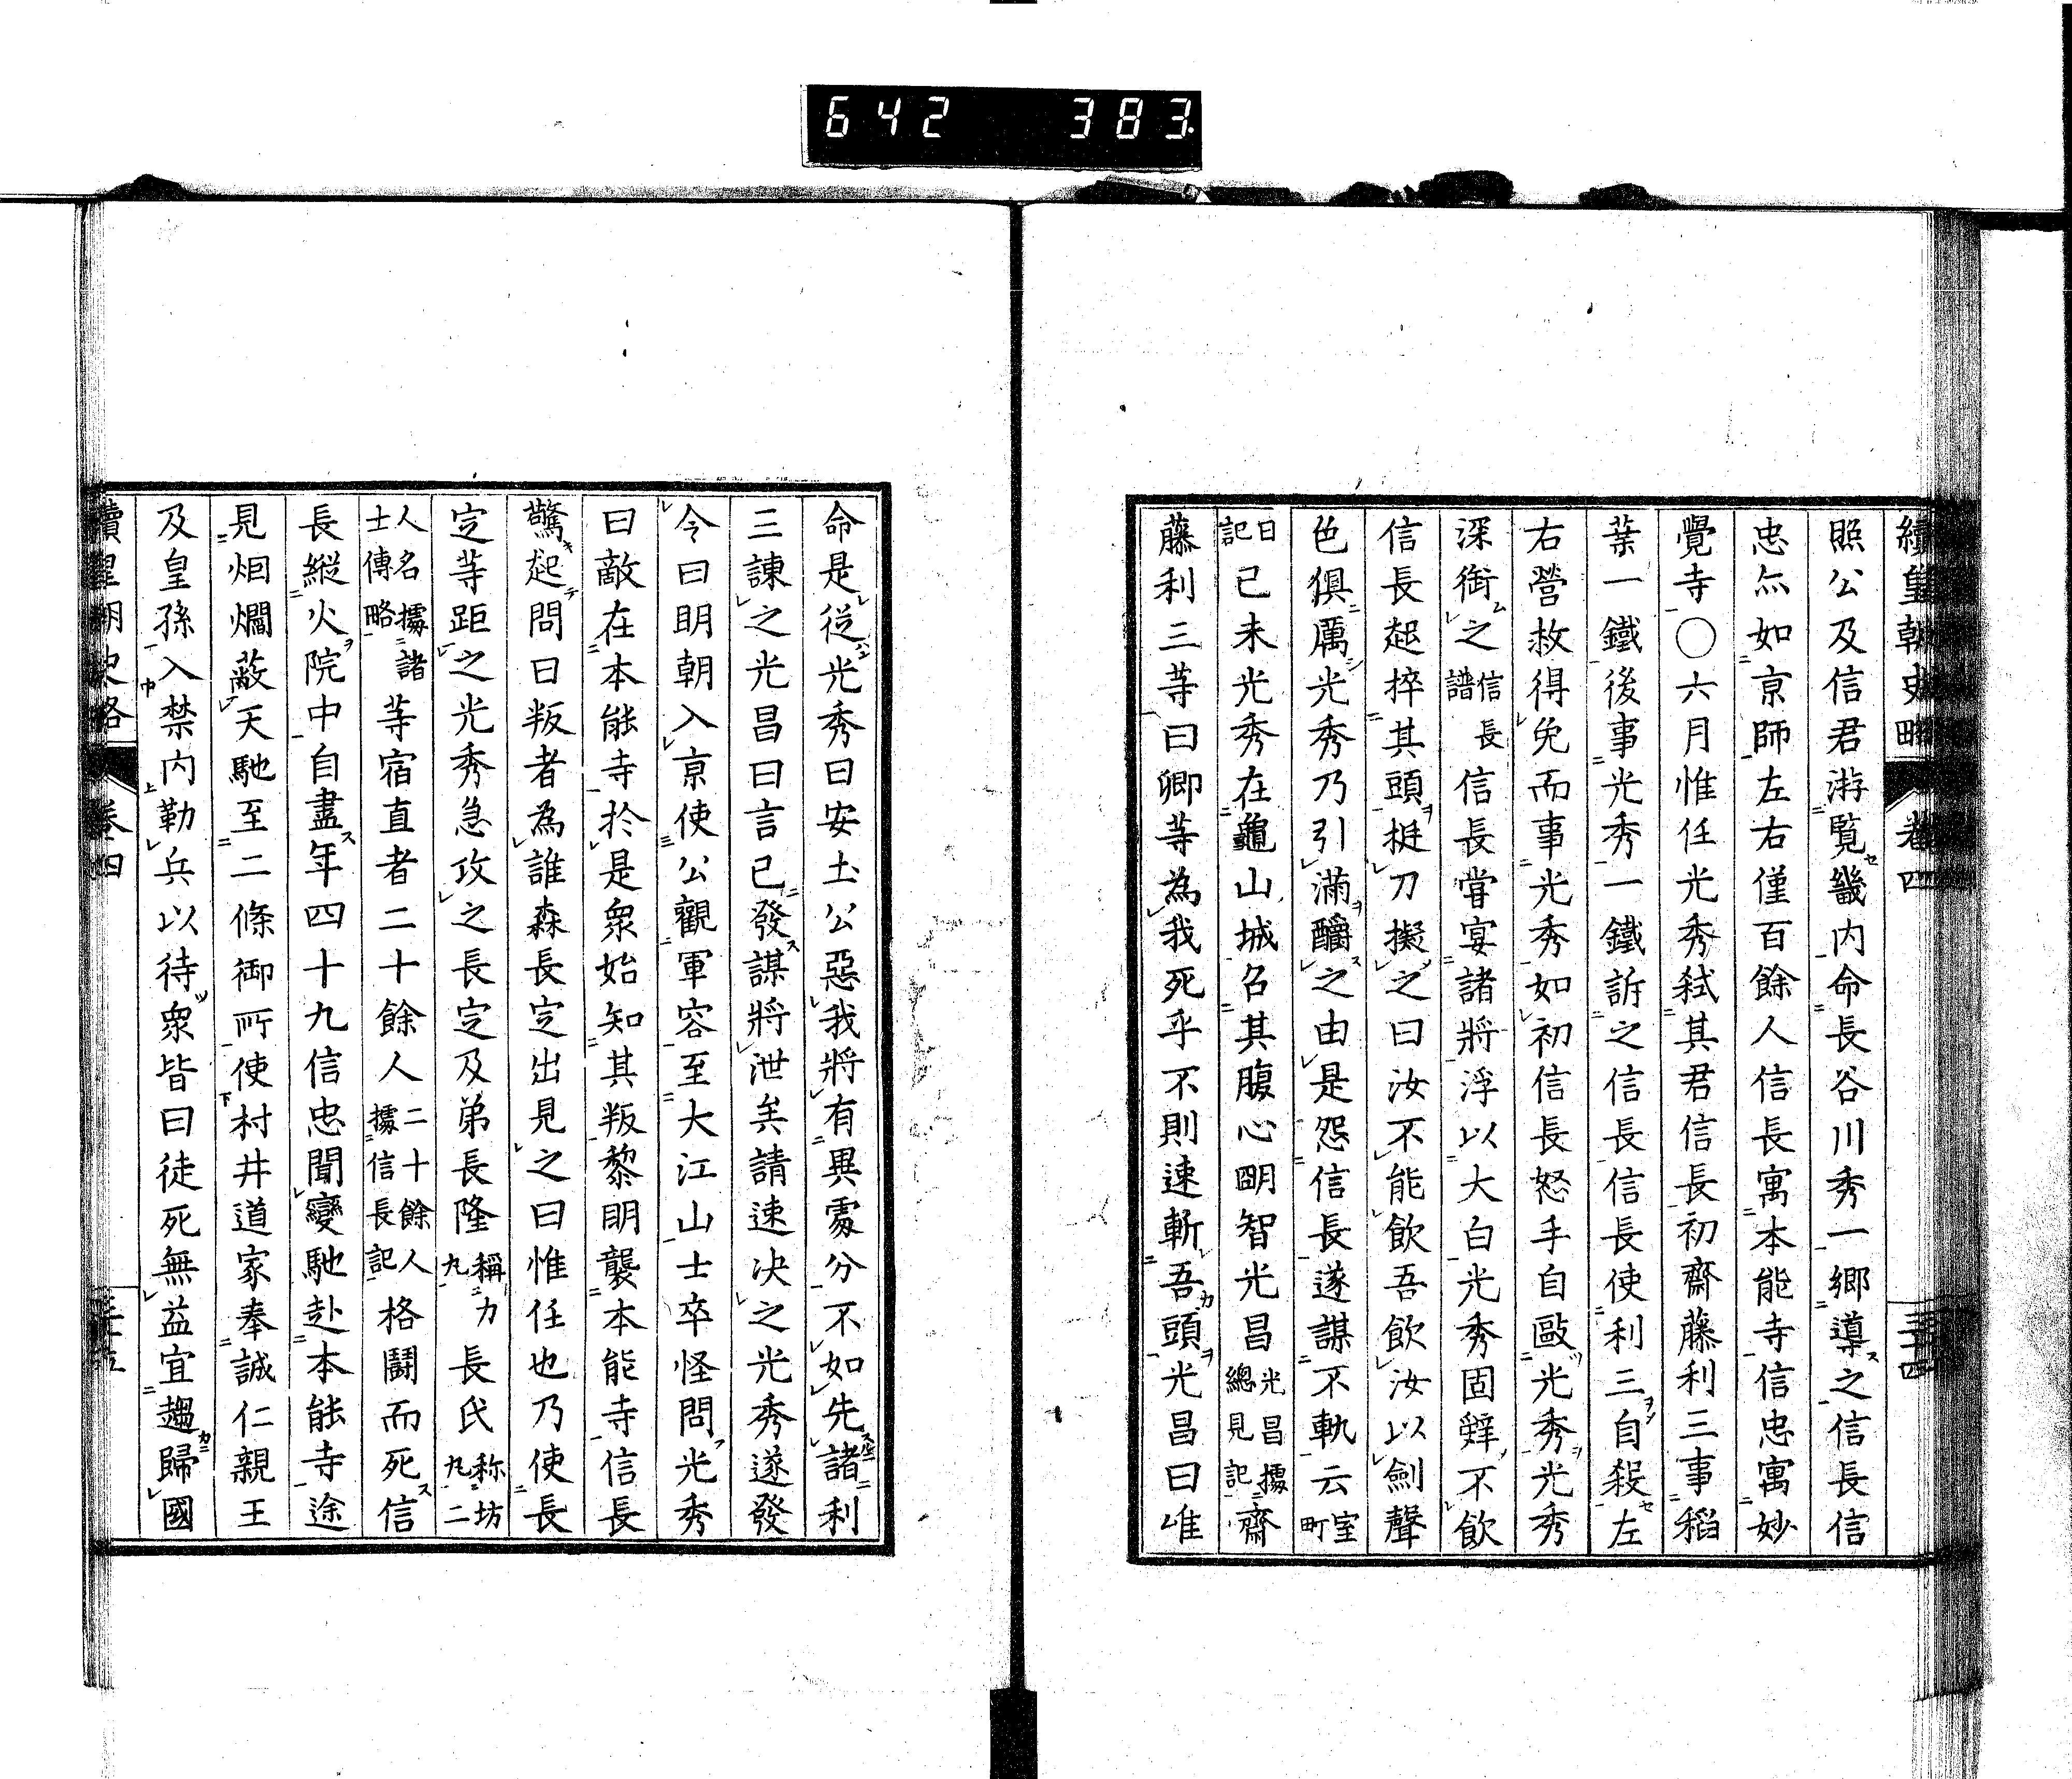 642 383
續皇朝史略 卷四 三十四
照公及信君游覧畿内命長谷川秀一郷導之信長信
忠尒如京師左右僅百餘人信長寓本能寺信忠寓妙
覺寺○六月惟任光秀弑其君信長初齋藤利三事稻
葉一鐵後事光秀一鐵訴之信長信長使利三自殺左
右營救得免而事光秀如初信長怒手自毆光秀光秀
深銜之信長譜信長嘗宴諸將浮以大白光秀固辤不飲
信長起捽其頭梃刀擬之曰汝不能飲吾飲汝以劍聲
色俱厲光秀乃引滿釂之由是怨信長遂謀不軌云室町
日記己未光秀在龜山城召其腹心明智光昌光昌據總見記齋
藤利三等曰卿等為我死乎不則速斬吾頭光昌曰唯
命是從光秀曰安土公惡我將有異處分不如先諸利
三諫之光昌曰言已發謀將泄矣請速決之光秀遂發
令曰明朝入京使公觀軍容至大江山士卒怪問光秀
曰敵在本能寺於是衆始知其叛黎明襲本能寺信長
驚起問曰叛者為誰森長定出見之曰惟任也乃使長
定等距之光秀急攻之長定及弟長隆稱力九長氏称坊九二
人名據諸士傳略等宿直者二十餘人二十餘人據信長記格鬪而死信
長縱火院中自盡年四十九信忠聞變馳赴本能寺途
見烟爓蔽天馳至二條御所使村井道家奉誠仁親王
及皇孫入禁内勒兵以待衆皆曰徒死無益宜趨歸國
續皇朝史略 卷四 三十五